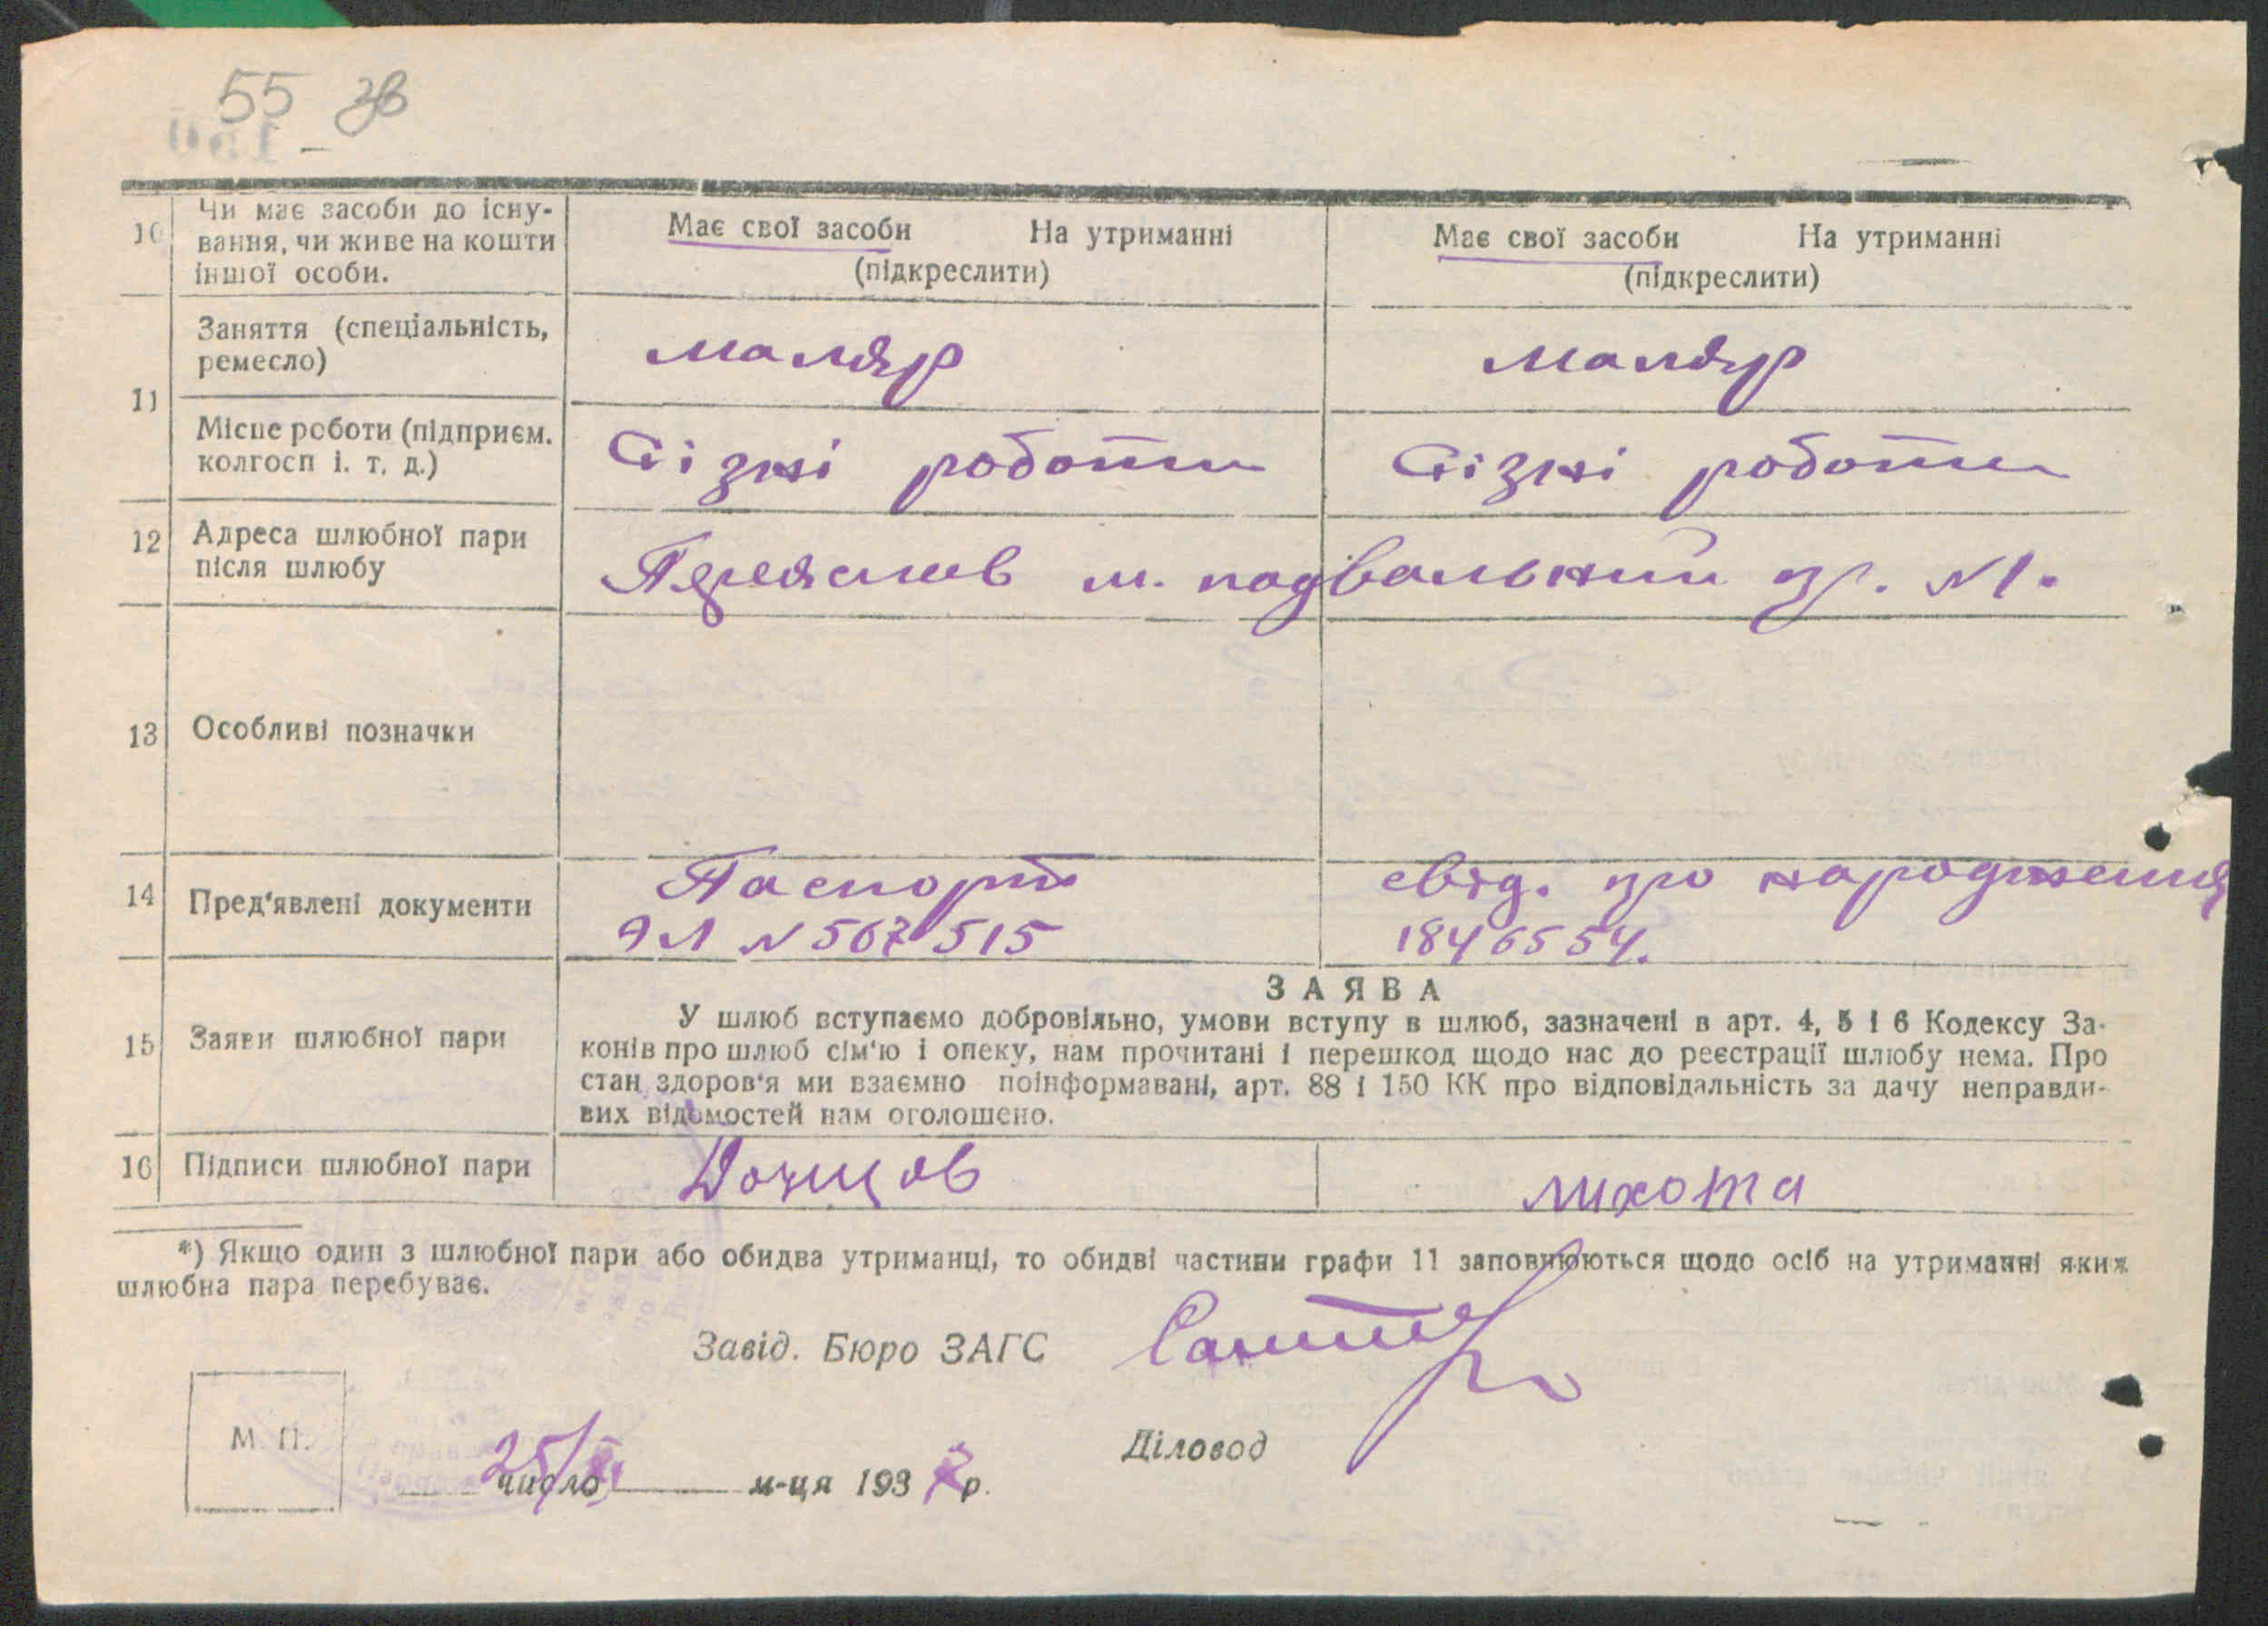 55 зв
10 Чи має засоби до існу-
вання, чи живе на кошти
іншої особи.
Має свої засоби На утриманні
(підкреслити)
Має свої засоби На утриманні
(підкреслити)
11 Заняття (спеціальність,
ремесло)
маляр
маляр
Місце роботи (підприєм.
колгосп і. т. д.)
Різні роботи
Різні роботи
12 Адреса шлюбної пари
після шлюбу
Переяслов м. подвальний пр. N1.
13 Особливі позначки
14 Пред'явлені документи
Паспорт
ЯЛ N 567515
свід. про народження
1846554.
15 Заяви шлюбної пари
ЗАЯВА
У шлюб вступаємо добровільно, умови вступу в шлюб, зазначені в арт. 4, 5 і 6 Кодексу За-
конів про шлюб сім'ю і опеку, нам прочитані і перешкод щодо нас до реєстрації шлюбу нема. Про
стан здоров'я ми взаємно поінформавані, арт. 88 і 150 КК про відповідальність за дачу неправди-
вих відомостей нам оголошено.
16 Підписи шлюбної пари
Донцов
лихота
*) Якщо один з шлюбної пари або обидва утриманці, то обидві частини графи 11 заповнюються щодо осіб на утриманні яких
шлюбна пара перебуває.
Завід. Бюро ЗАГС
М. П.
Діловод
25/ число м-ця 193 р.